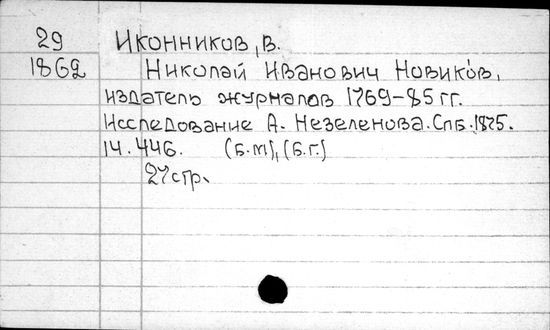 29 Иконников, В.
1862 Николай Иванович Новиков,
издатель журналов 1769-85 гг.
Исследование А. Незеленова. Спб. 1875.
14.446. (Б.м), (Б.г.)
27 стр.